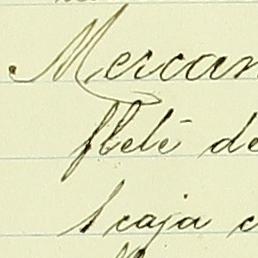 Mercan
fleté de
1 caja c